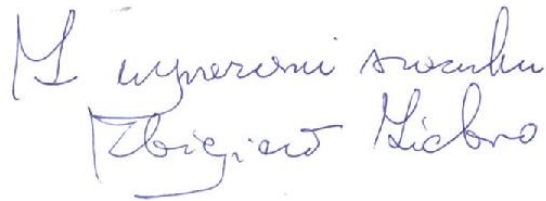 Z wyrazami szacunku
Zbigniew Ziobro